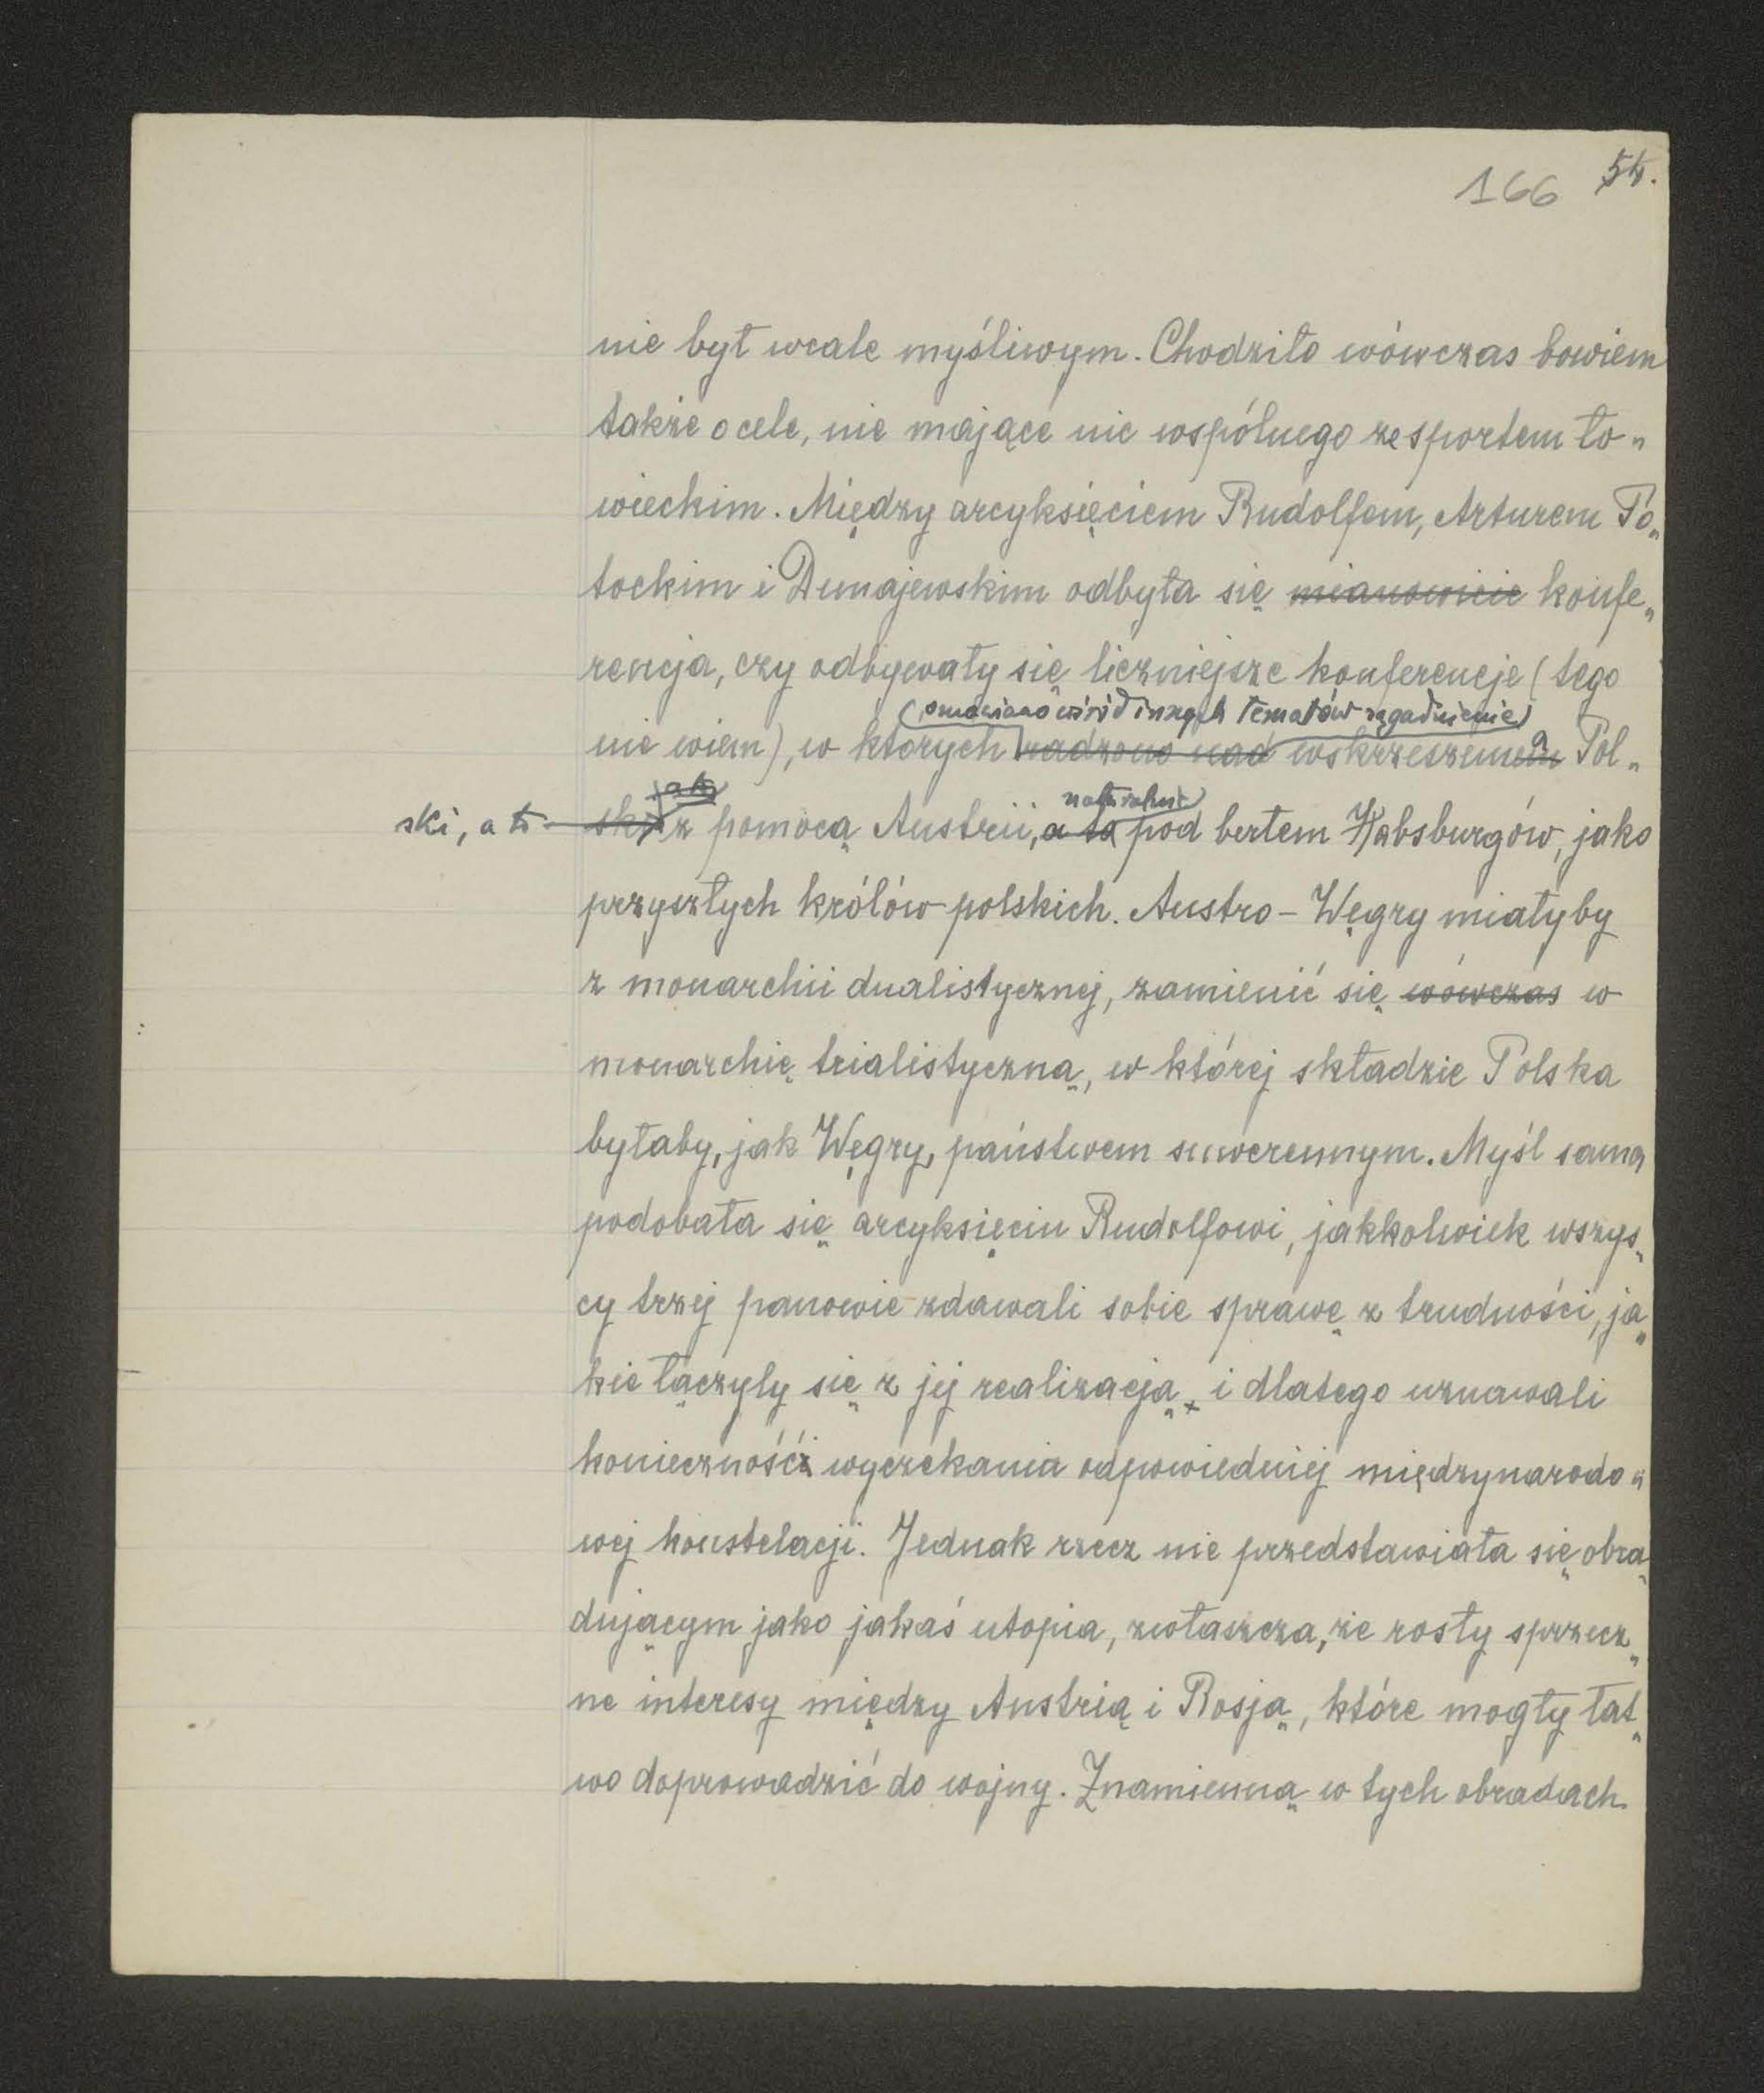 166 54.
nie był wcale myśliwym. Chodziło wówczas bowiem
także o cele, nie mające nic wspólnego ze sportem ło„
wieckim. Między arcyksięciem Rudolfem, Arturem Po„
tockim i Dunajewskim odbyła się mianowicie konfe„
rencja, czy odbywały się liczniejsze konferencje (tego
omawiano wśród innych tematów zagadnienie
nie wiem), w których radzono nad wskrzeszeniem a Pol„
jak naturalnie
ski, a to ski z pomocą Austrii, a to pod berłem Habsburgów, jako
przyszłych królów polskich. Austro-Węgry miałyby
z monarchii dualistycznej, zamienić się wówczas w
monarchię trialistyczną, w której składzie Polska
byłaby, jak Węgry, państwem suwerennym. Myśl sama
podobała się arcyksięciu Rudolfowi, jakkolwiek wszys„
cy trzej panowie zdawali sobie sprawę z trudności, ja„
kie łączyly się z jej realizacją, i dlatego uznawali
konieczność wyczekania odpowiedniej międzynarodo„
wej konstelacji. Jednak rzecz nie przedstawiała się obra„
dującym jako jakaś utopia, zwłaszcza, że rosły sprzecz„
ne interesy między Austrią i Rosją, które mogły łat„
wo doprowadzić do wojny. Znamienną w tych obradach